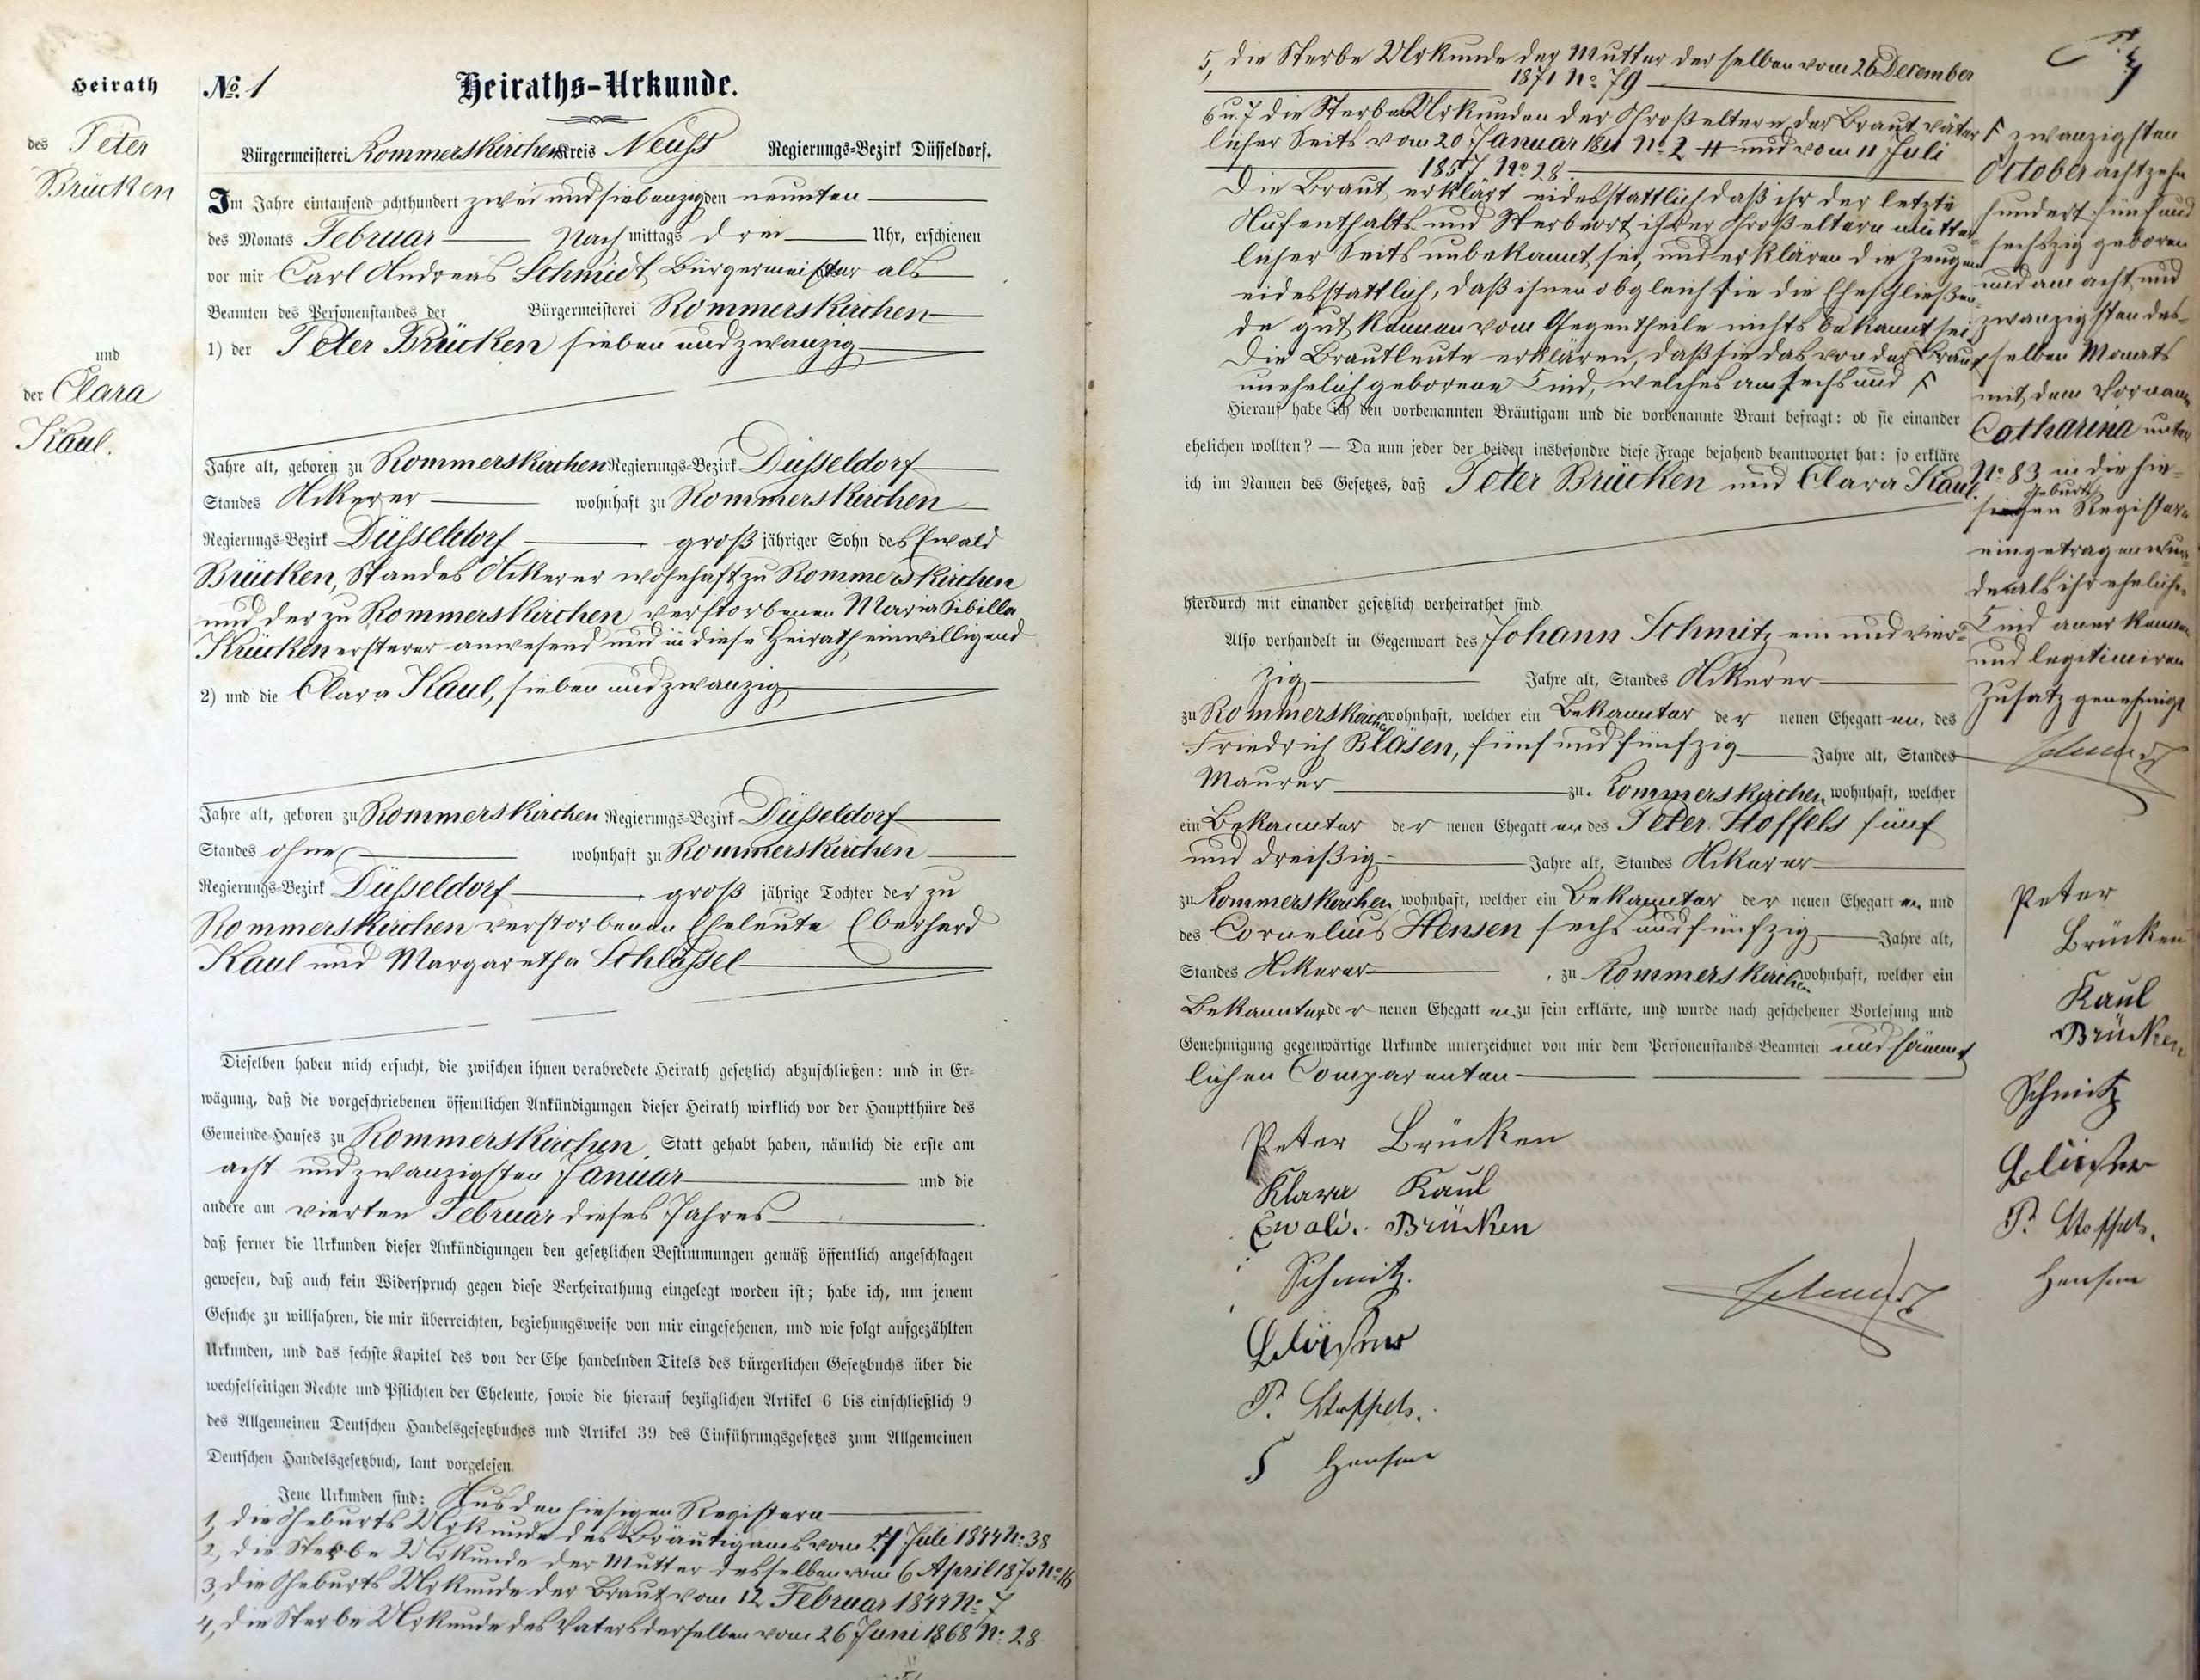 Heirath
des Peter
Brücken
und
der Clara
Kaul.
No. 1 Heiraths-Urkunde.
Bürgermeisterei Rommerskirchen Kreis Neuss Regierungs-Bezirk Düsseldorf.
Im Jahre eintausend achthundert zwei und siebenzig den neunten
des Monats Februar Nachmittags drei Uhr, erschienen
vor mir Carl Andreas Schmidt Bürgermeister als
Beamten des Personenstandes der Bürgermeisterei Rommerskirchen
1) der Peter Brücken sieben und zwanzig
Jahre alt, geboren zu Rommerskirchen Regierungs-Bezirk Düsseldorf
Standes Ackerer wohnhaft zu Rommerskirchen
Regierungs-Bezirk Düsseldorf großjähriger Sohn des Ewald
Brücken, Standes Ackerer wohnhaft zu Rommerskirchen
und der zu Rommerskirchen verstorbenen Maria Sibilla
Krücken ersterer anwesend und in diese Heirath einwilligend
2) und die Clara Kaul, sieben und zwanzig
Jahre alt, geboren zu Rommerskirchen Regierungs-Bezirk Düsseldorf
Standes ohne wohnhaft zu Rommerskirchen
Regierungs-Bezirk Düsseldorf großjährige Tochter der zu
Rommerskirchen verstorbenen Eheleute Eberhard
Kaul und Margaretha Schlüssel
Dieselben haben mich ersucht, die zwischen ihnen verabredete Heirath gesetzlich abzuschließen: und in Er-
wägung, daß die vorgeschriebenen öffentlichen Ankündigungen dieser Heirath wirklich vor der Hauptthüre des
Gemeinde-Hauses zu Rommerskirchen Statt gehabt haben, nämlich die erste am
acht und zwanzigsten Januar und die
andere am vierten Februar dieses Jahres
daß ferner die Urkunden dieser Ankündigungen den gesetzlichen Bestimmungen gemäß öffentlich angeschlagen
gewesen, daß auch kein Widerspruch gegen diese Verheirathung eingelegt worden ist; habe ich, um jenem
Gesuche zu willfahren, die mir überreichten, beziehungsweise von mir eingesehenen, und wie folgt aufgezählten
Urkunden, und das sechste Kapitel des von der Ehe handelnden Titels des bürgerlichen Gesetzbuchs über die
wechselseitigen Rechte und Pflichten der Eheleute, sowie die hierauf bezüglichen Artikel 6 bis einschließlich 9
des Allgemeinen Deutschen Handelsgesetzbuches und Artikel 39 des Einführungsgesetzes zum Allgemeinen
Deutschen Handelsgesetzbuch, laut vorgelesen.
Jene Urkunden sind: Aus den hiesigen Registern
1, die Geburts Urkunde des Bräutigams vom Juli 1844 No. 38
2, die Sterbe Urkunde der Mutter desselben vom 6 April 1870 No. 16
3, die Geburts Urkunde der Braut vom 12 Februar 1844 No. 7
4, die Sterbe Urkunde des Vaters derselben vom 26 Juni 1868 No. 28
5, die Sterbe Urkunde der Mutter derselben vom 26 December
1871 No. 79
6 u. 7 die Sterbe Urkunden der Großeltern der Braut väter
licher Seits vom 20 Januar No. 2 und vom 11 Juli
1857 No. 28
Die Braut erklärt eidesstattlich daß ihr der letzte
Aufenthalts und Sterbeort ihrer Großeltern mütter
licher Seits unbekannt sei, und erklären die Zeugen
eidesstattlich, daß ihnen obgleich sie die Eheschließen
de gut kennen vom Gegentheile nichts bekannt sei
Die Brautleute erklären, daß sie das von der Braut
unehelich geborene Kind, welches am sechs und F
Hierauf habe ich den vorbenannten Bräutigam und die vorbenannte Braut befragt: ob sie einander
ehelichen wollten? — Da nun jeder der beiden insbesondre diese Frage bejahend beantwortet hat: so erkläre
ich im Namen des Gesetzes, daß Peter Brücken und Clara Kaul
hierdurch mit einander gesetzlich verheirathet sind.
Also verhandelt in Gegenwart des Johann Schmitz ein und vier-
zig Jahre alt, Standes Ackerer
zu Rommerskirchen wohnhaft, welcher ein Bekannter der neuen Ehegatten, des
Friedrich Bläsen, fünf und fünfzig Jahre alt, Standes
Maurer zu Rommerskirchen wohnhaft, welcher
ein Bekannter der neuen Ehegatten des Peter Stoffels fünf
und dreißig Jahre alt, Standes Ackerer
zu Rommerskirchen wohnhaft, welcher ein Bekannter der neuen Ehegatten und
des Cornelius Hensen sechs und fünfzig Jahre alt,
Standes Ackerer zu Rommerskirchen wohnhaft, welcher ein
Bekannter der neuen Ehegatten zu sein erklärte, und wurde nach geschehener Vorlesung und
Genehmigung gegenwärtige Urkunde unterzeichnet von mir dem Personenstands-Beamten und sämmt
lichen Comparenten
Peter Brücken
Klara Kaul
Ewald Brücken
Schmitz.
P. Stoffels.
Hensen
Schmidt
F zwanzigsten
October achtzehn
hundert fünf und
sechszig geboren
und am acht und
zwanzigsten des-
selben Monats
mit dem Vornamen
Catharina unter
No. 83 in die hie-
Geburts
sigen Register
eingetragen wur-
de als ihr eheliches
Kind anerkennen
und legitimiren
Zusatz genehmigt
Schmidt
Peter
Brücken
Kaul
Brücken
Schmitz
P. Stoffels.
Hensen